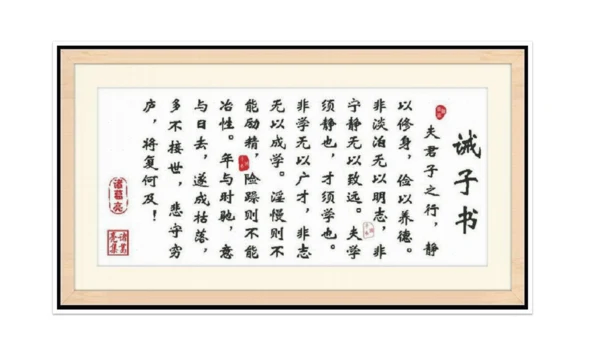 诫子书
夫君子之行，静
以修身，俭以养德。
非淡泊无以明志，非
宁静无以致远。夫学
须静也，才须学也。
非学无以广才，非志
无以成学。淫慢则不
能励精，险躁则不能
冶性。年与时驰，意
与日去，遂成枯落，
多不接世，悲守穷
庐，将复何及！
诸葛亮